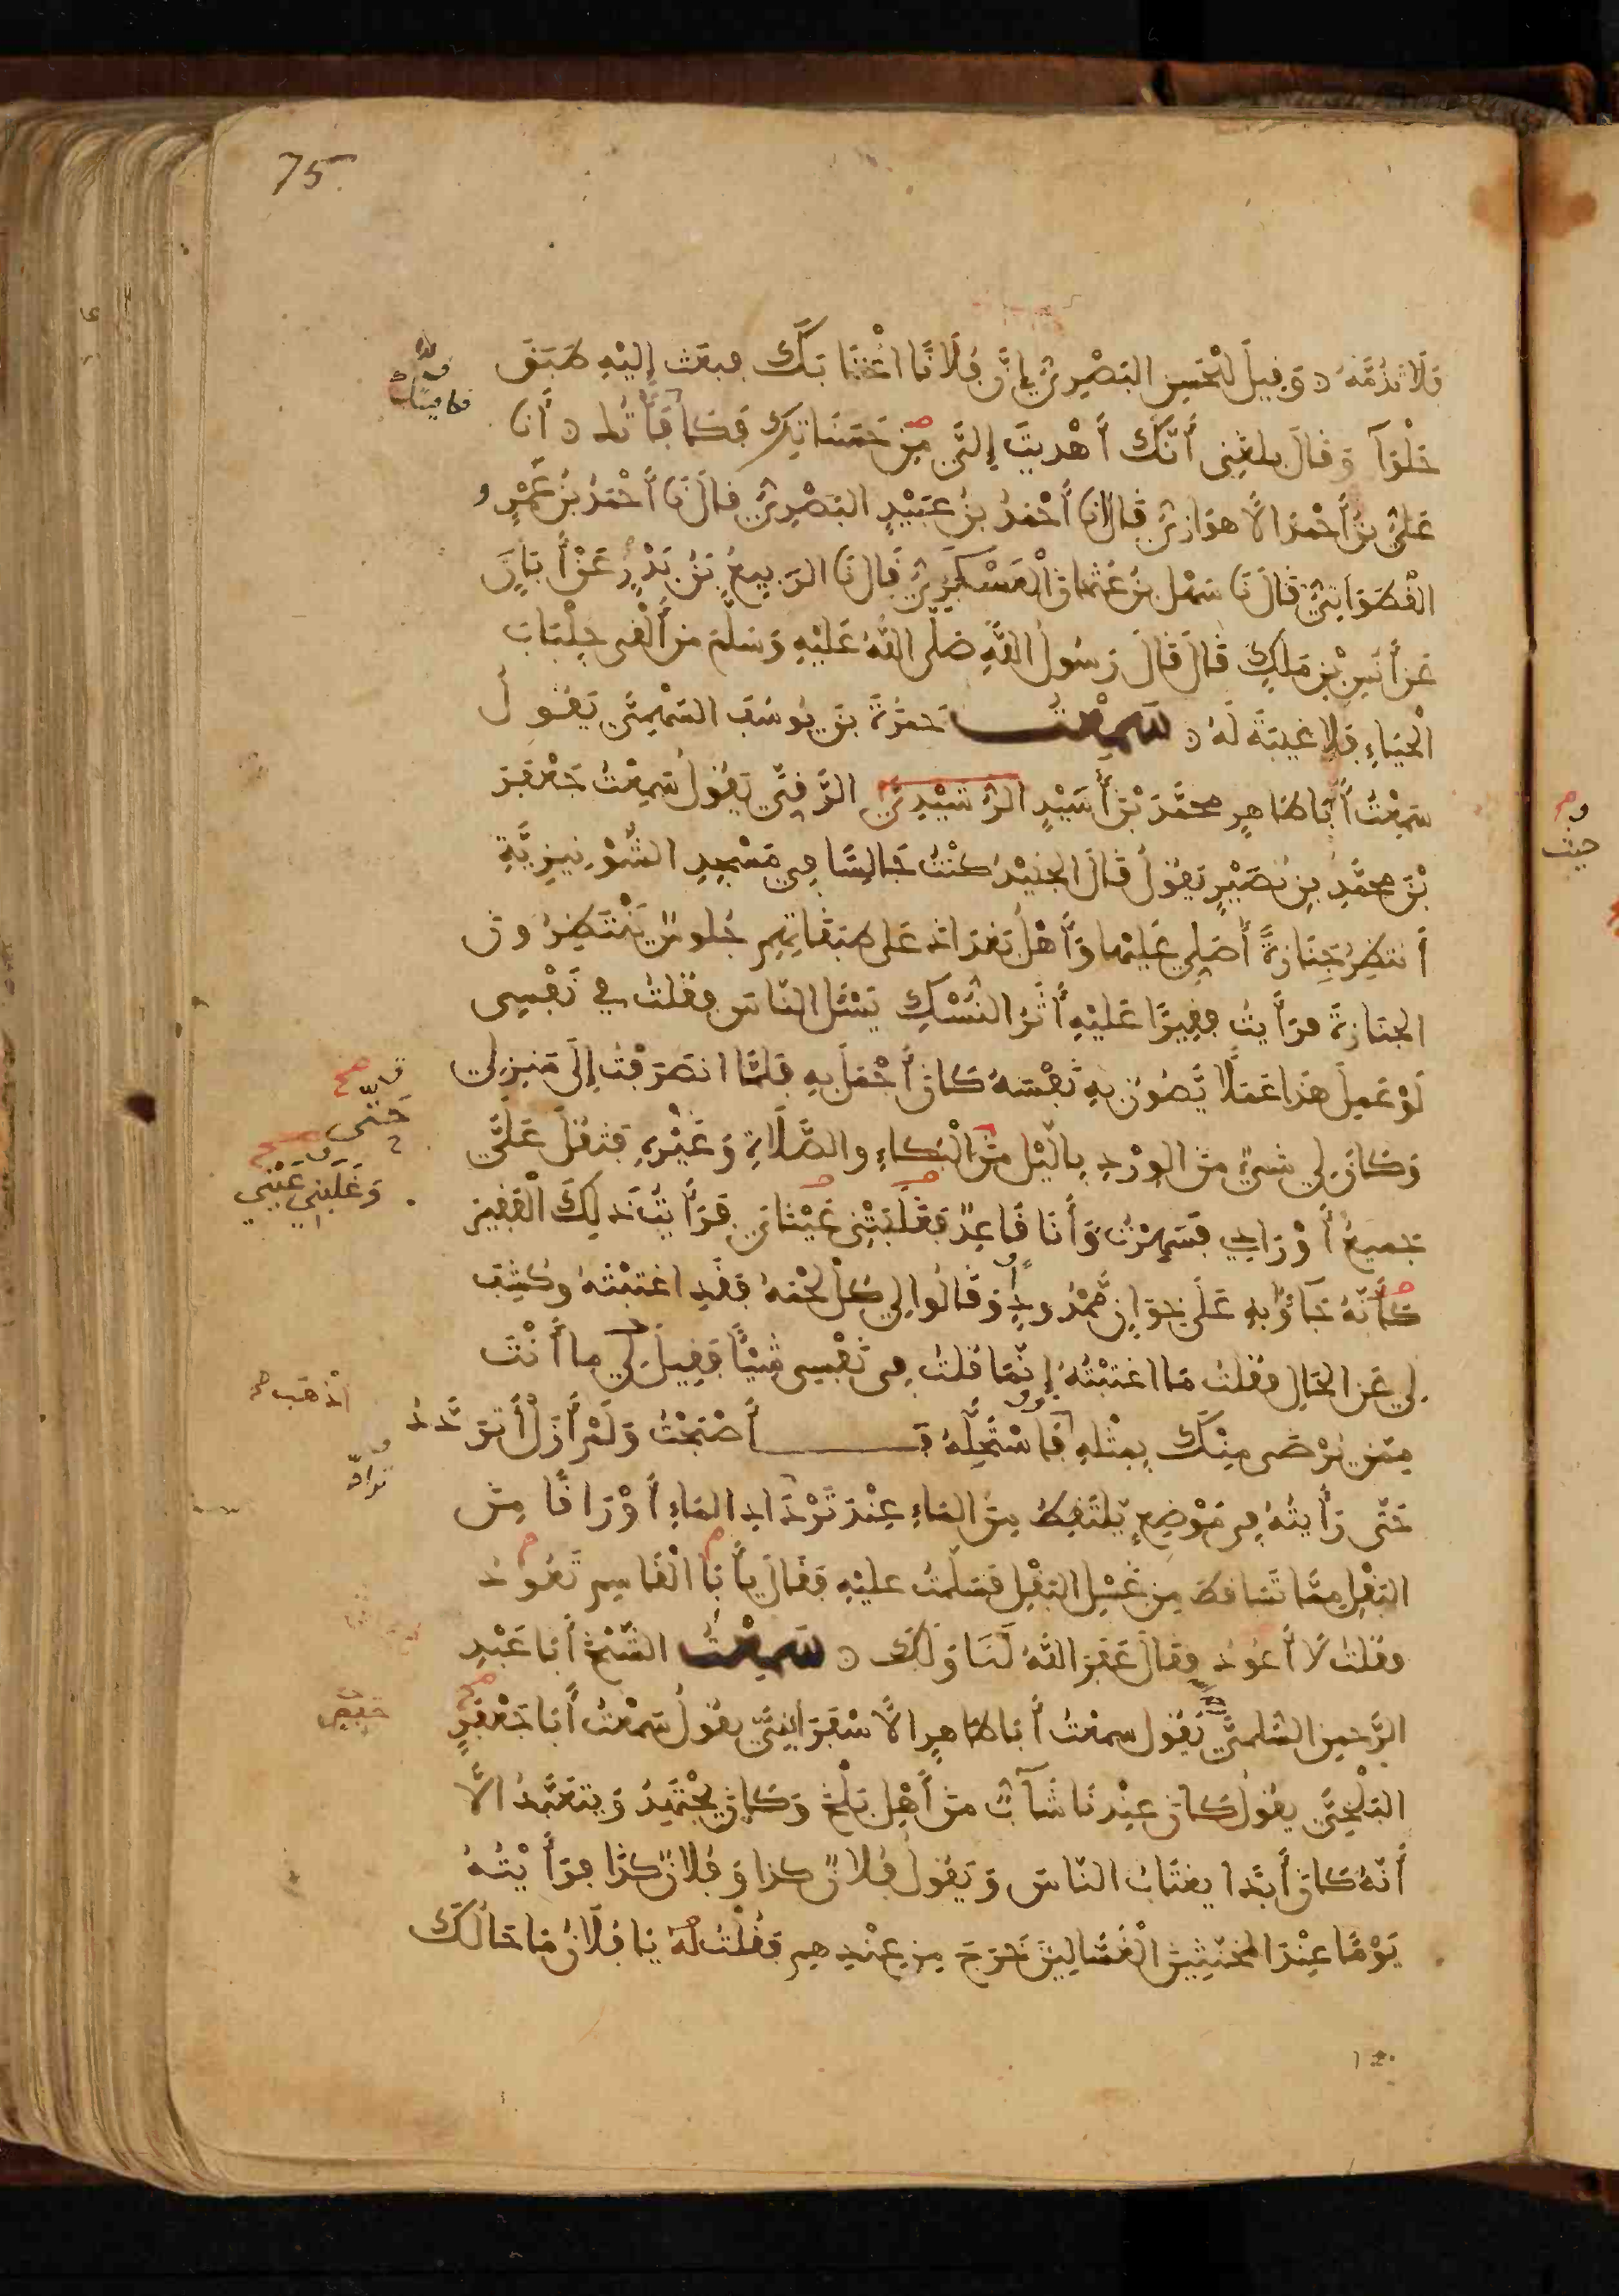 75
فلا تذمه ۞ وقيل للحسن البصري إن فلانا اغتابك فبعث إليه طبق
حلوا وقال بلغني أنك أهديت إلي من حسناتك فكافأتك ۞ أنا
علي بن أحمد الأهوازي قال انا أحمد بن عبيد البصري قال نا أحمد بن عمرو
القطواني قال نا سهل بن عثمان العسكري قال نا الربيع بن بدر عن أبان
عن أنس بن ملك قال قال رسول الله صلى الله عليه وسلم من ألقى جلباب
الحياء فلا غيبة له ۞ سمعت حمزة بن يوسف السهمي يقول
سمعت أبا طاهر محمد بن أسيد الرقي يقول سمعت جعفر
بن محمد بن نصير يقول قال الجنيد كنت جالسا في مسجد الشونيزية
أنتظر جنازة أصلي عليها وأهل بغداد على طبقاتهم جلوس ينتظرون
الجنازة فرأيت فقيرا عليه أثر النسك يسئل الناس فقلت في نفسي
لو عمل هذا عملا يصون به نفسه كان أجمل به فلما انصرفت إلى منزلي
وكان لي شيء من الورد بالليل من البكاء والصلاة وغيره فثقل علي
جميع أورادي فسهرت وأنا قاعد فغلبتني عيناي فرأيت ذلك الفقير
كأنه جاؤا به على خوان ممدود وقالوا لي كل لحمه فقد اغتبته وكشف
لي عن الحال فقلت ما اغتبته إنما قلت في نفسي شيئا فقيل لي ما أنت
ممن نرضى منك بمثله فاستحله فـأصبحت ولم أزل أتردد
حتى رأيته في موضع يلتقط من الماء عند ترداد الماء أوراقا من
البقل مما تساقط من غسل البقل فسلمت عليه فقال يأبا القاسم تعود
فقلت لا أعود فقال غفر الله لنا ولك ۞ سمعت الشيخ أبا عبد
الرحمن السلمي يقول سمعت أبا طاهر الاسفرايني يقول سمعت أبا جعفر
البلخي يقول كان عندنا شاب من أهل بلخ وكان يجتهد ويتعبد الا
أنه كان أبدا يغتاب الناس ويقول فلان كذا وفلان كذا فرأيته
يوما عند المخنثين الغسالين خرج من عندهم فقلت له يا فلان ما حالك
فكافيتك
حتى
وغلبني عيني
اذهب
حفص
حيث